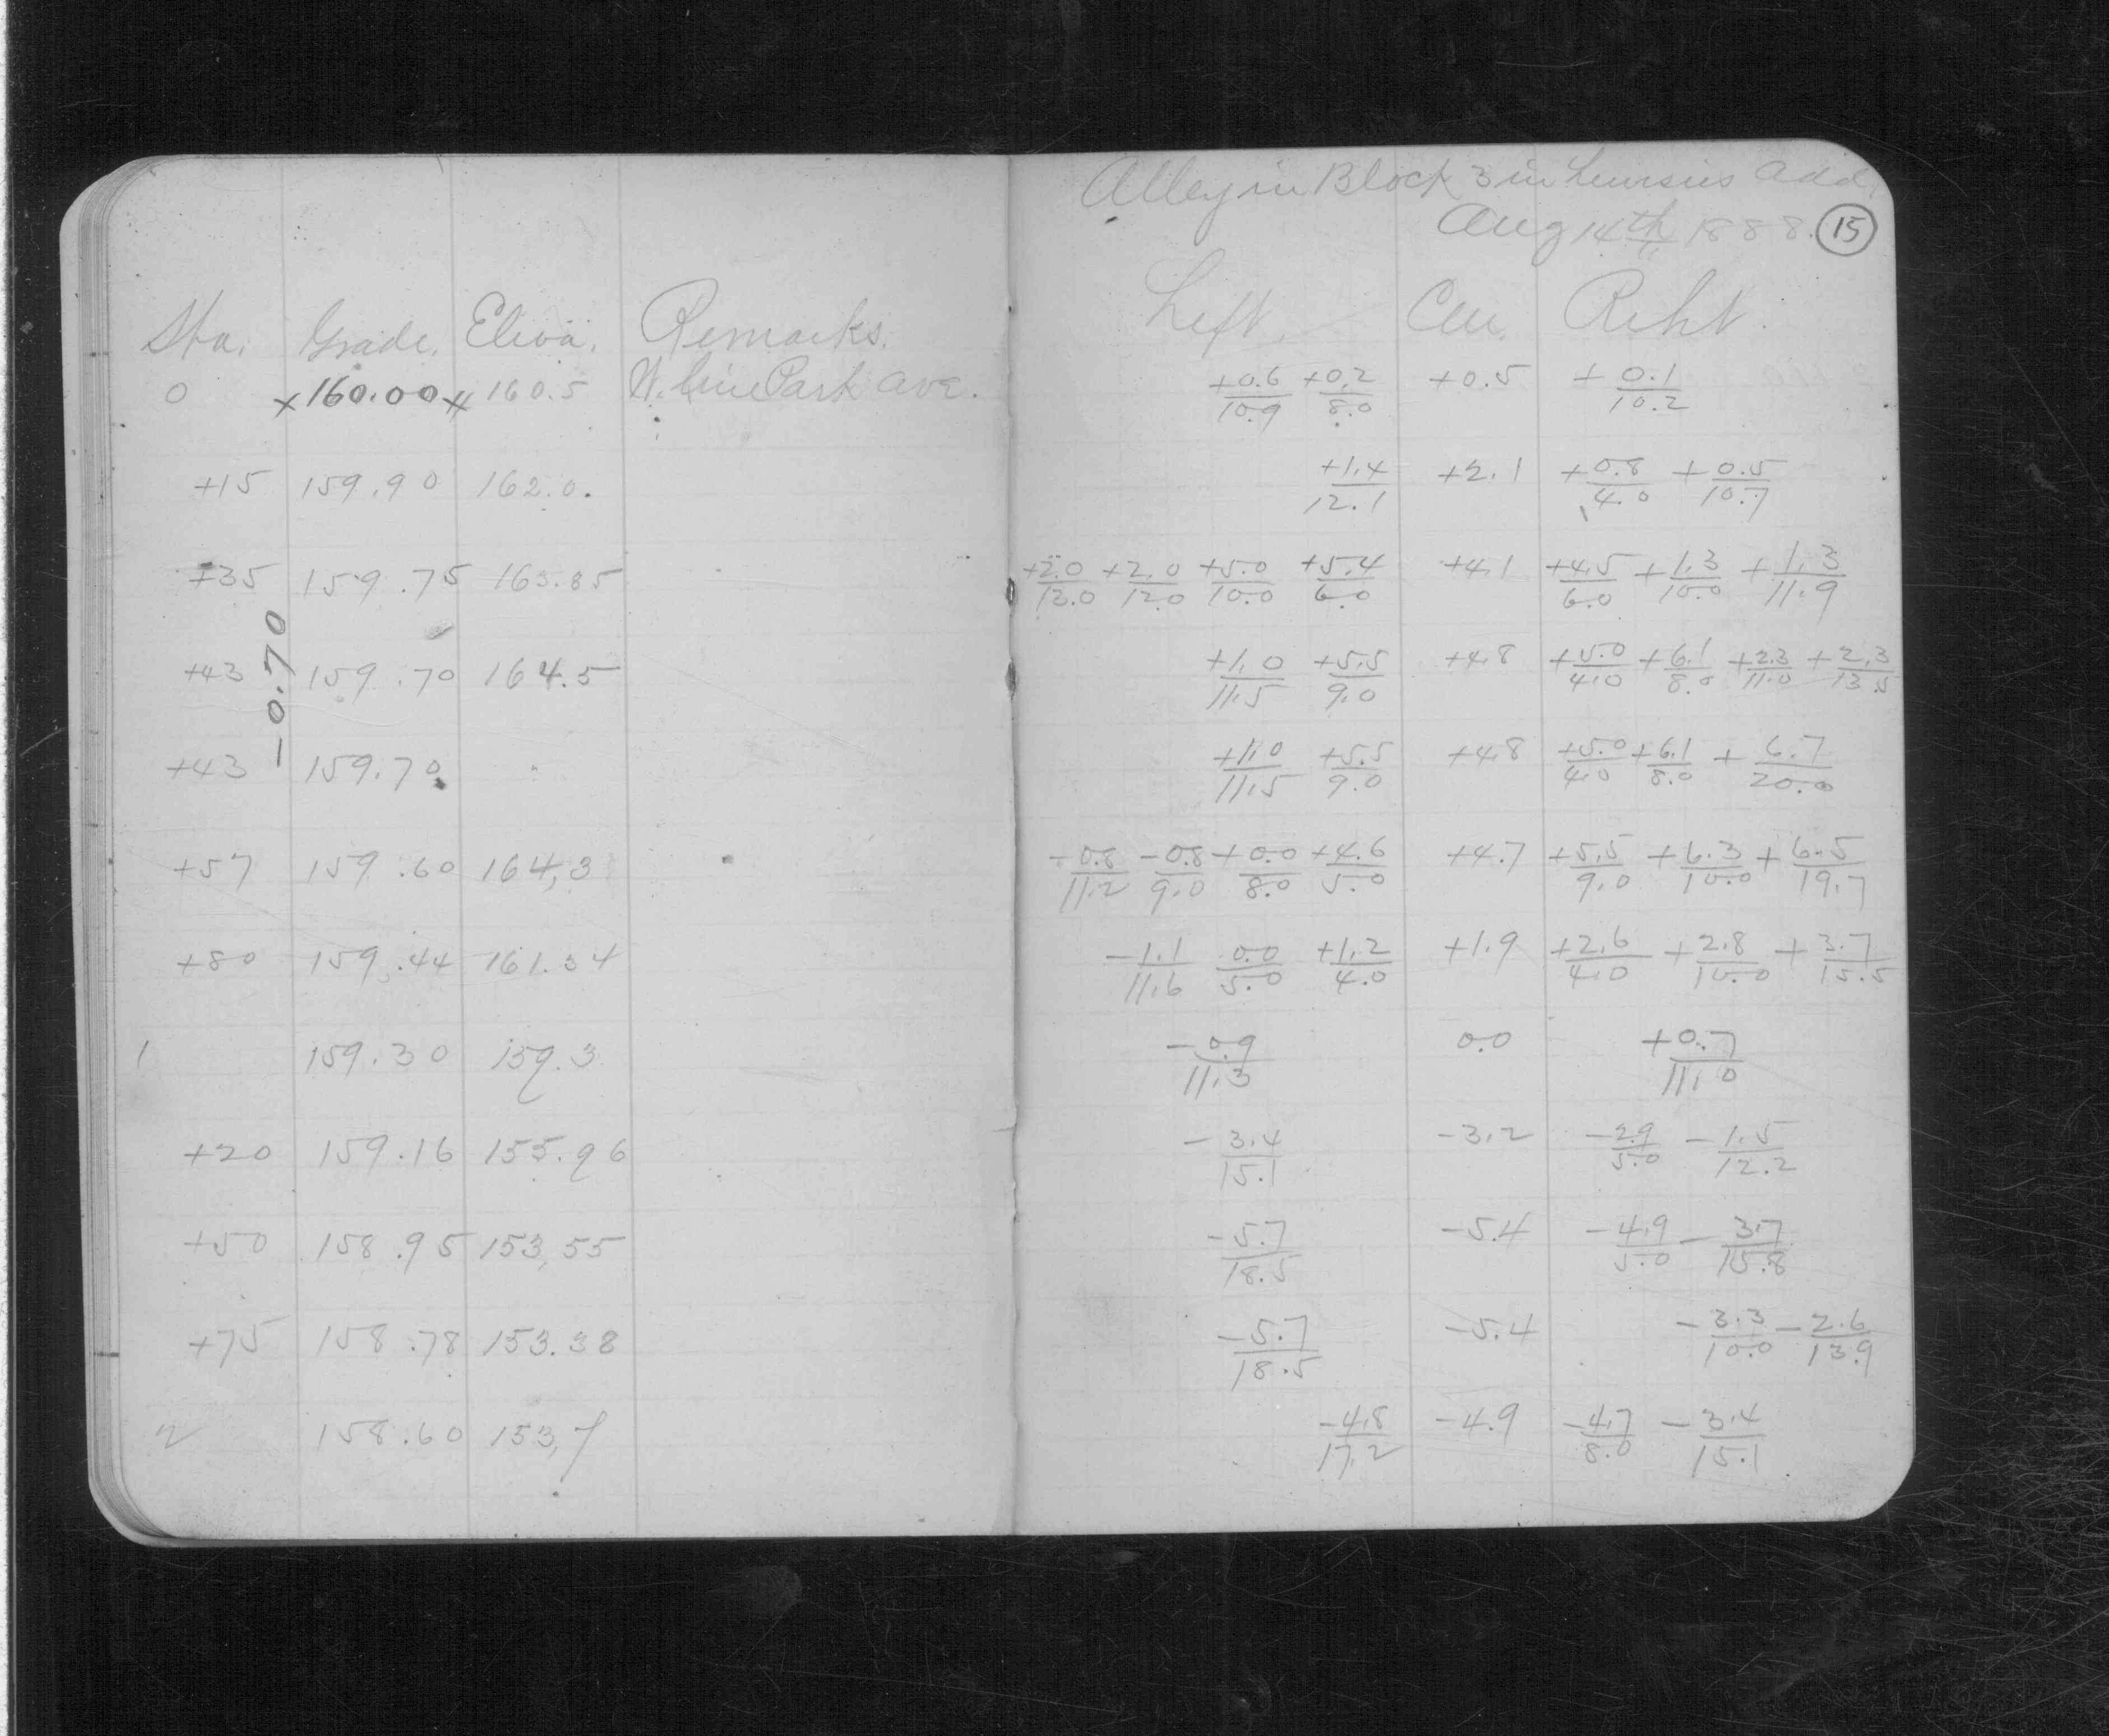 Alley in Block 3 in Add.
Aug 14th 1888. 15
Sta. Grade. Eleva. Remarks. Left. Cen. Riht.
0 x160.00x 160.5 W. line Park Ave. +0.6/10.9 +0.2/8.0 +0.5 +0.1/10.2
+15 159.90 162.0. +1.4/12.1 +2.1 +0.8/4.0 +0.5/10.7
+35 159.75 163.85 +2.0/13.0 +2.0/12.0 +5.0/10.0 +5.4/6.0 +4.1 +4.5/6.0 +1.3/10.0 +1.3/11.9
-0.70
+43 159.70 164.5 +1.0/11.5 +5.5/9.0 +4.8 +5.0/4.0 +6.1/8.0 +2.3/11.0 +2.3/13.5
+43 159.70 +1.0/11.5 +5.5/9.0 +4.8 +5.0/4.0 +6.1/8.0 +6.7/20.0
+57 159.60 164.3 -0.8/11.2 -0.8/9.0 +0.0/8.0 +4.6/5.0 +4.7 +5.5/9.0 +6.3/10.0 +6.5/19.7
+80 159.44 161.34 -1.1/11.6 0.0/5.0 +1.2/4.0 +1.9 +2.6/4.0 +2.8/10.0 +3.7/15.5
1 159.30 159.3 -0.9/11.3 0.0 +0.7/11.0
+20 159.16 155.96 -3.4/15.1 -3.2 -2.9/5.0 -1.5/12.2
+50 158.95 153.55 -5.7/18.5 -5.4 -4.9/5.0 -3.7/15.8
+75 158.78 153.38 -5.7/18.5 -5.4 -3.3/10.0 -2.6/13.9
2 158.60 153.7 -4.8/17.2 -4.9 -4.7/8.0 -3.4/15.1